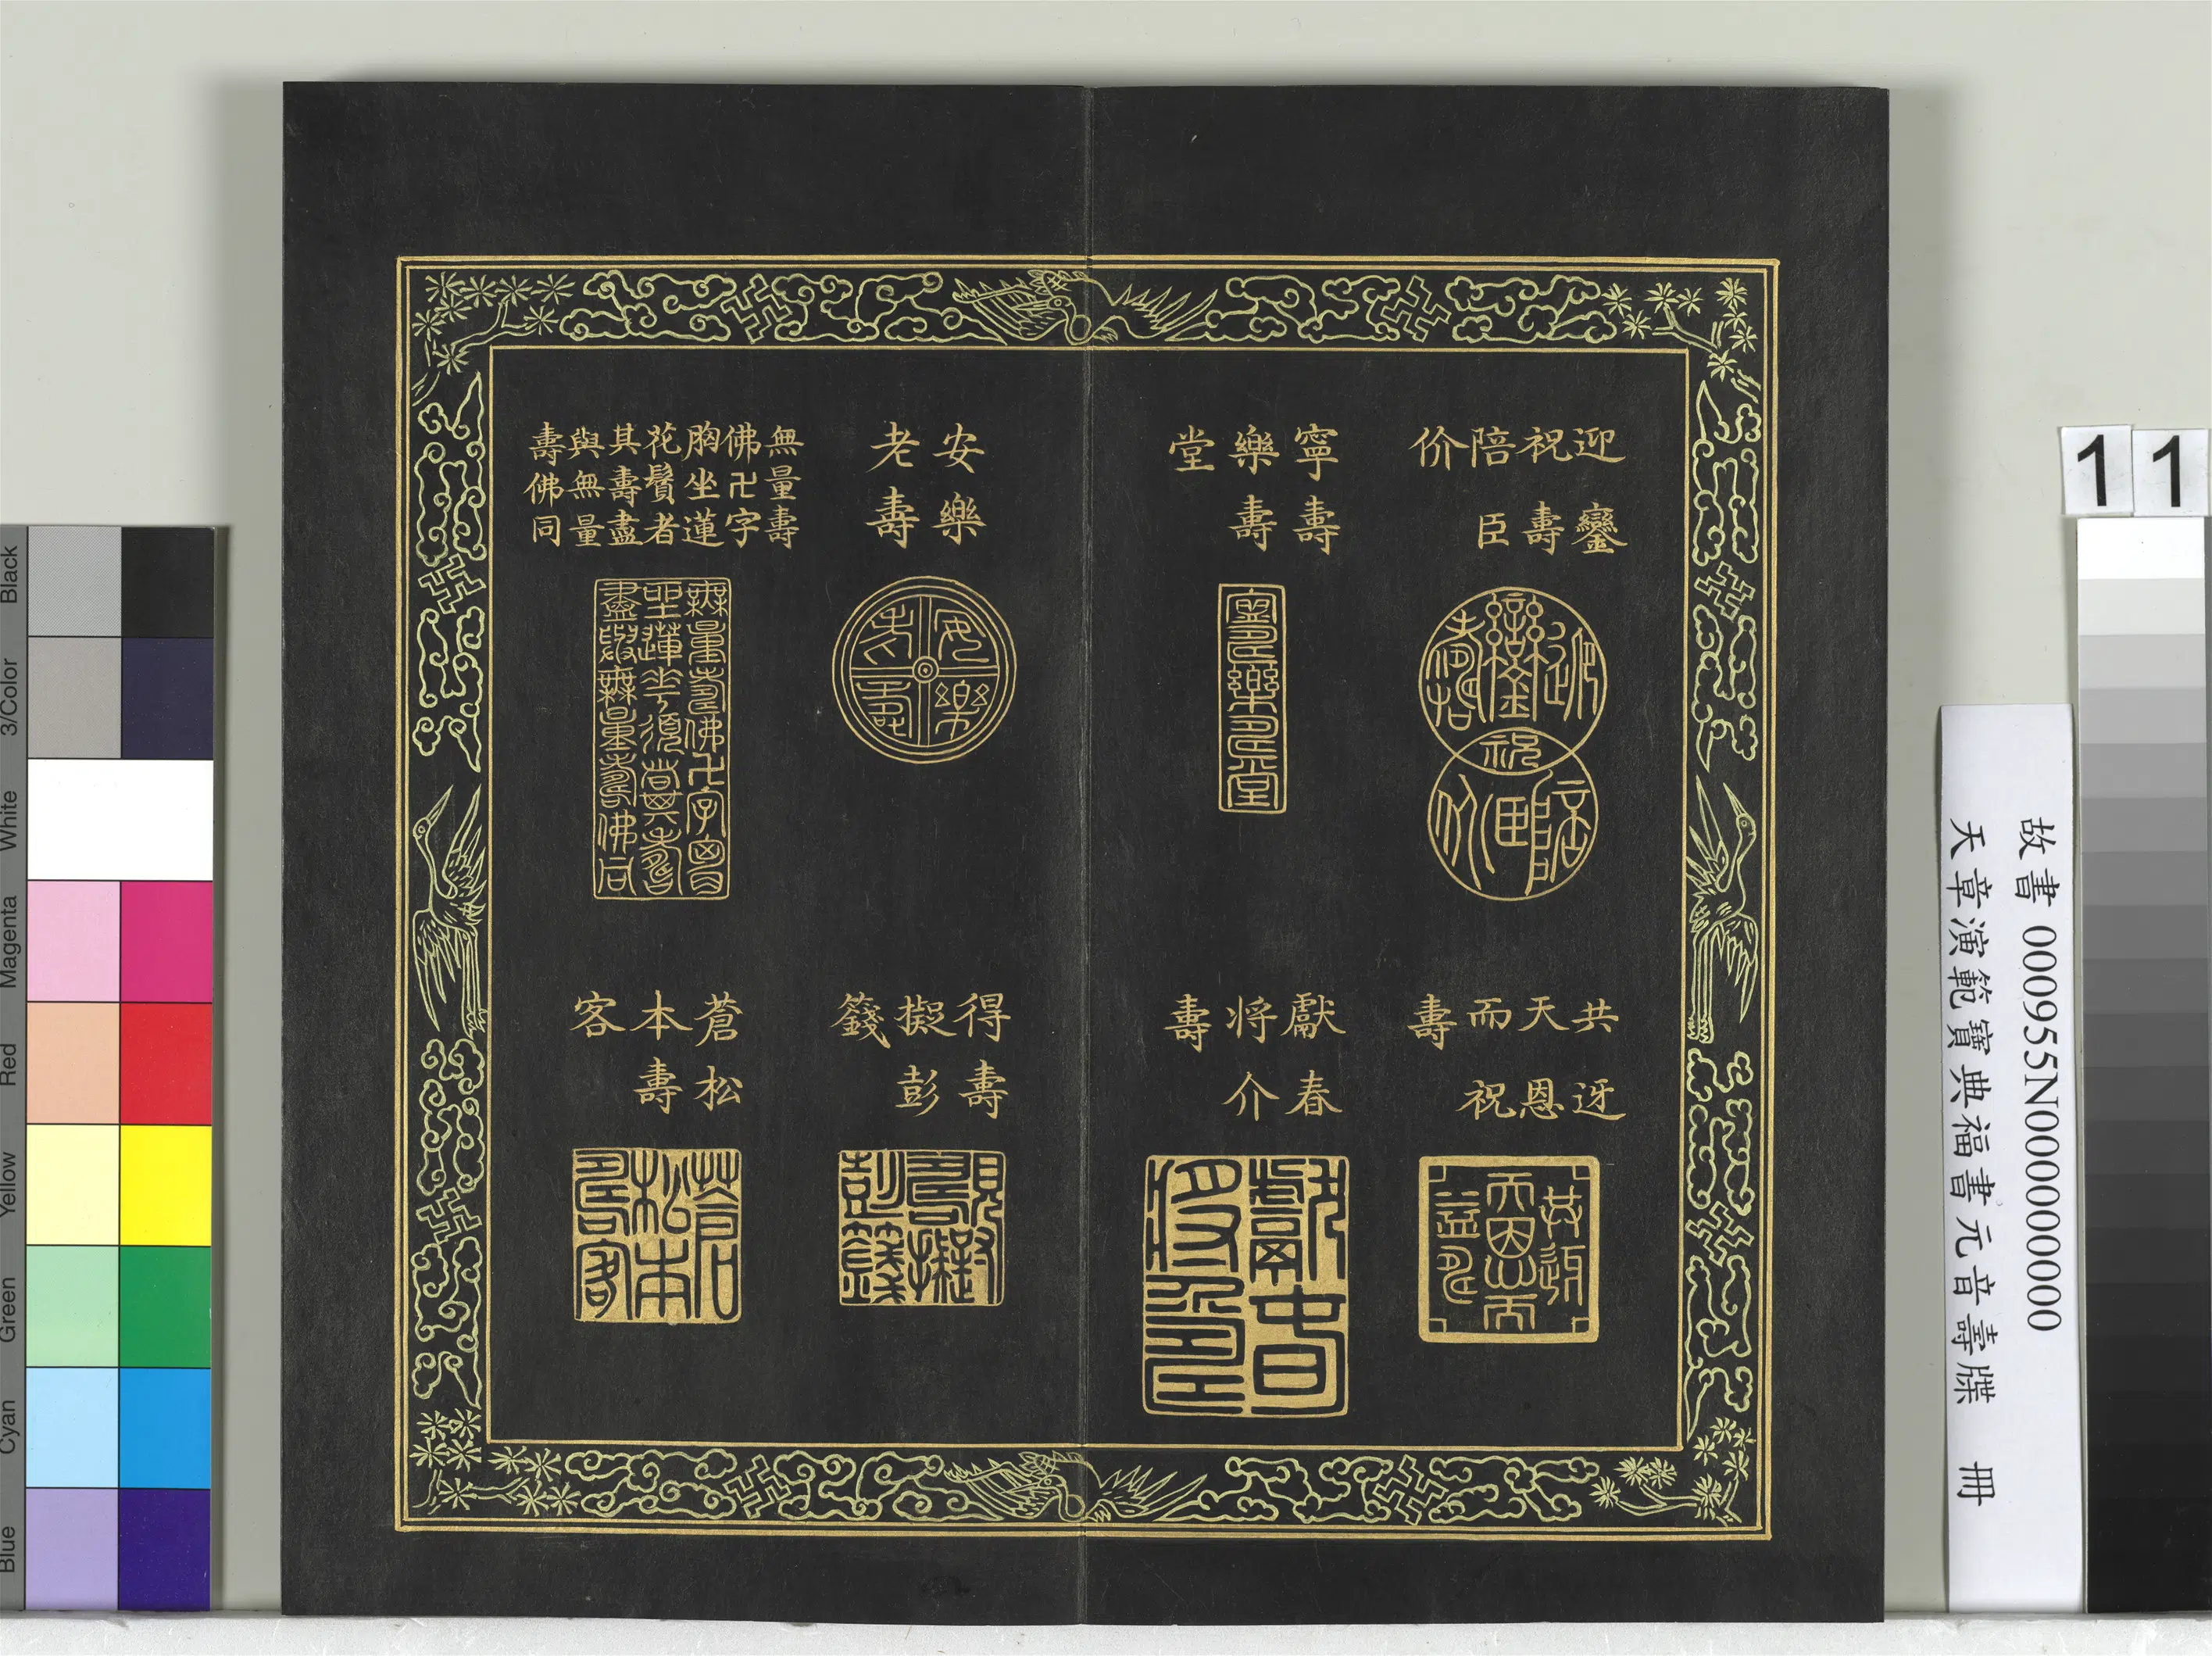 迎鑾
祝壽
陪臣
价
寧壽
樂壽
堂
共迓
天恩
而祝
壽
獻春
將介
壽
安樂
老壽
無量壽
佛卍字
胸坐蓮
花鬚者
其壽盡
與無量
壽佛同
得壽
擬彭
籛
蒼松
本壽
客
11
故書 000955N000000000
天章演範寶典福書元音壽牒 冊
Black
3/Color
White
Magenta
Red
Yellow
Green
Cyan
Blue